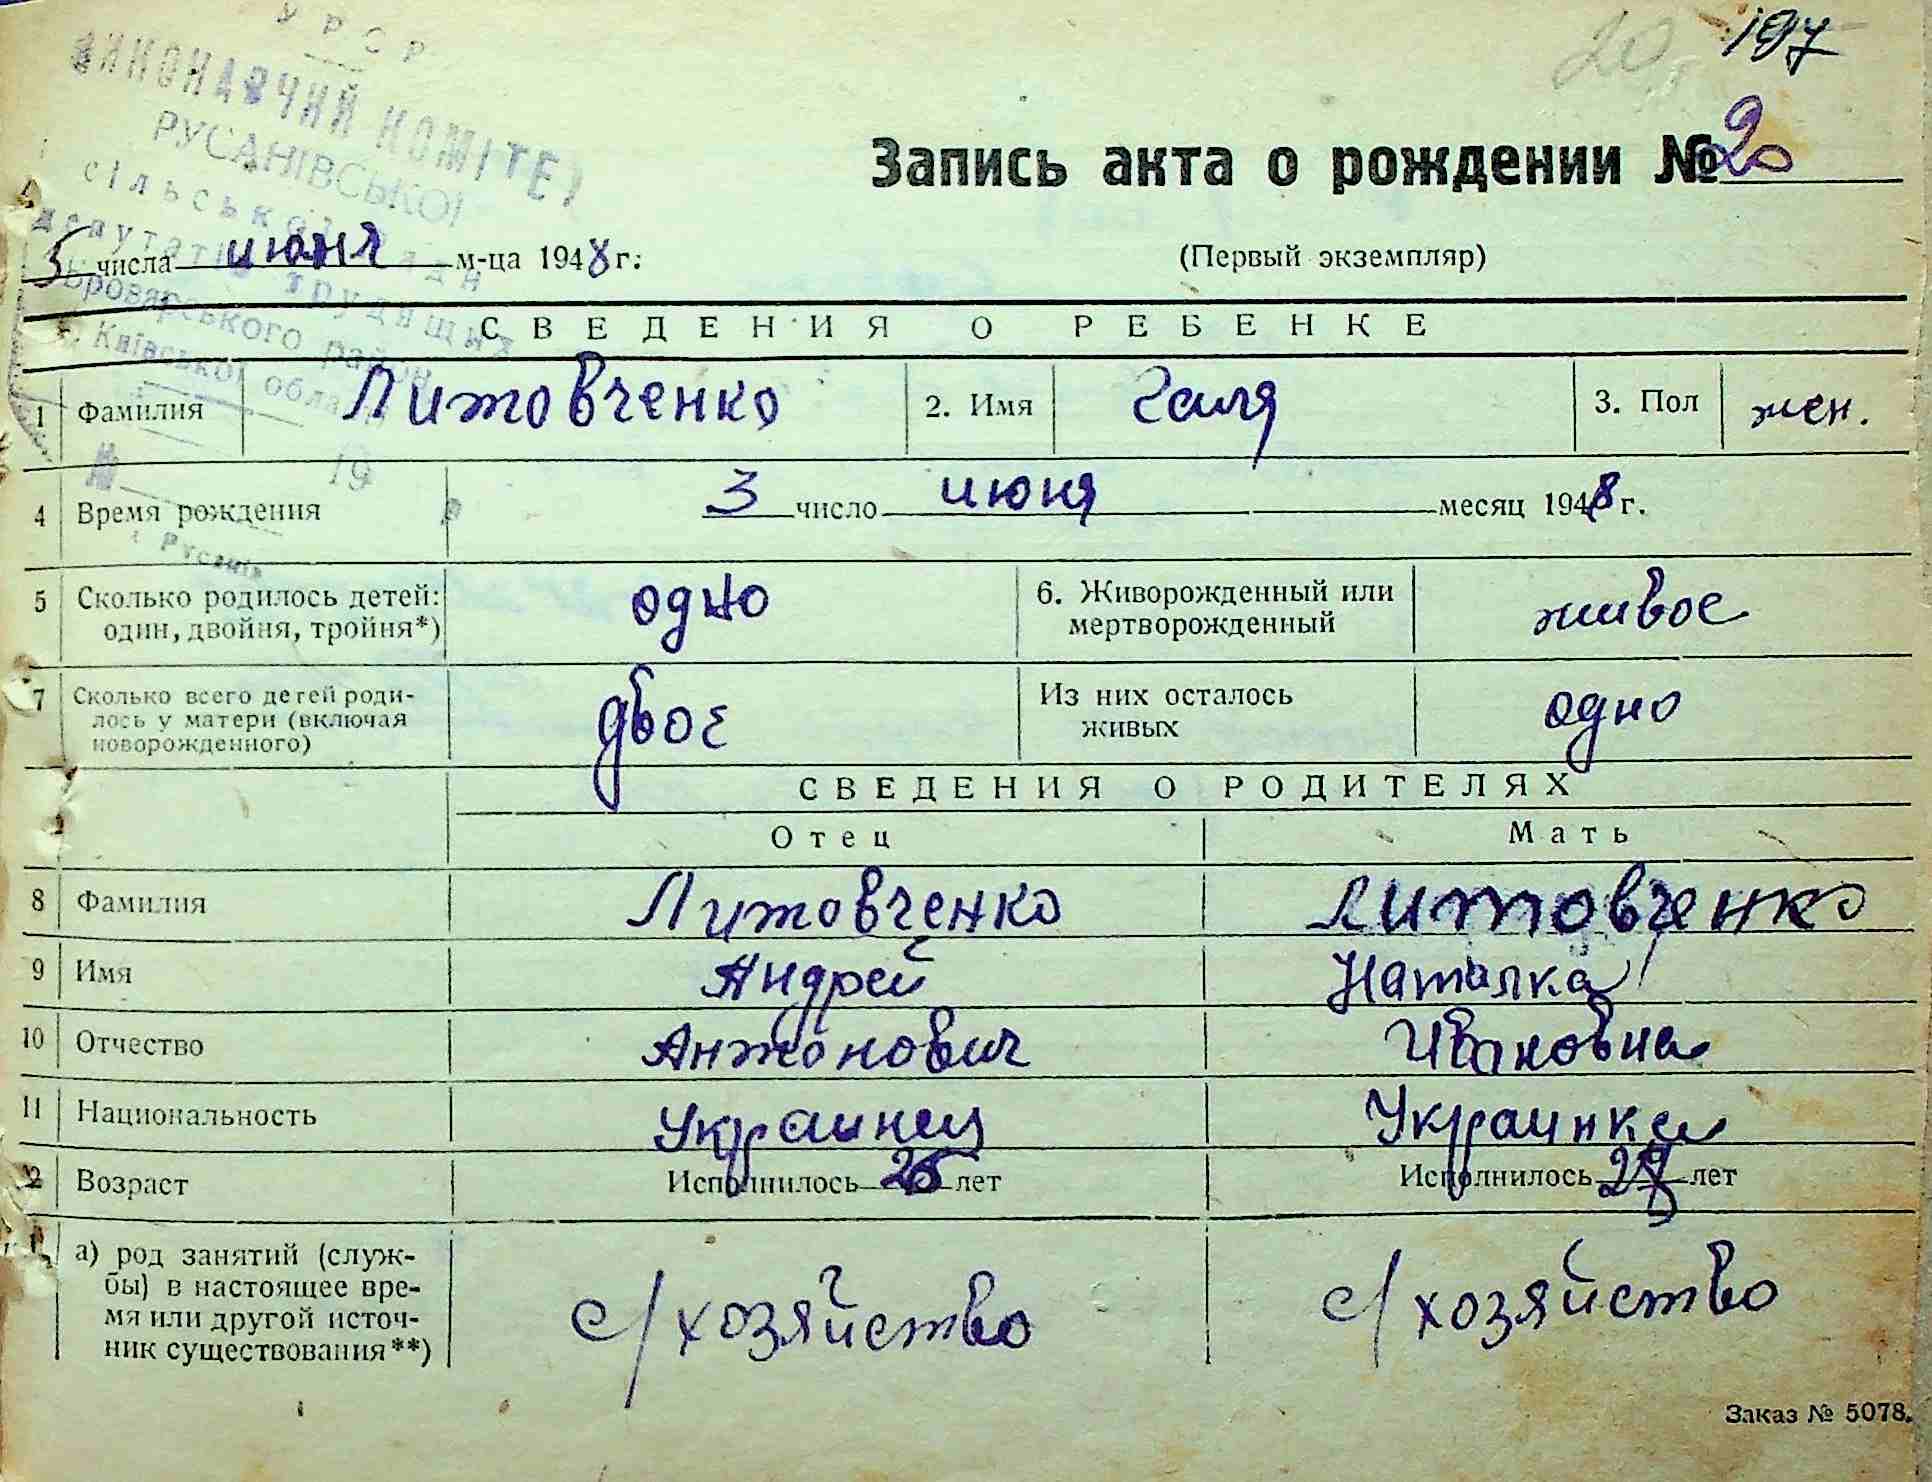 УРСР
ВИКОНАВЧИЙ КОМІТЕТ
РУСАНІВСЬКОЇ
сільської ради
депутатів трудящих
Броварського району
Київської області
№ 19
с. Русанів
20 197
Запись акта о рождении № 20
5 числа июня м-ца 1948 г. (Первый экземпляр)
СВЕДЕНИЯ О РЕБЕНКЕ
1 Фамилия Литовченко 2. Имя Галя 3. Пол жен.
4 Время рождения 3 число июня месяц 1948 г.
5 Сколько родилось детей: один, двойня, тройня*) одно 6. Живорожденный или мертворожденный живое
7 Сколько всего детей роди-
лось у матери (включая
новорожденного) двое Из них осталось живых одно
СВЕДЕНИЯ О РОДИТЕЛЯХ
Отец Мать
8 Фамилия Литовченко Литовченко
9 Имя Андрей Наталка
10 Отчество Антонович Ивановна
11 Национальность Украинец Украинка
12 Возраст Исполнилось лет Исполнилось лет
а) род занятий (служ-
бы) в настоящее вре-
мя или другой источ-
ник существования**) с/хозяйство с/хозяйство
Заказ № 5078.